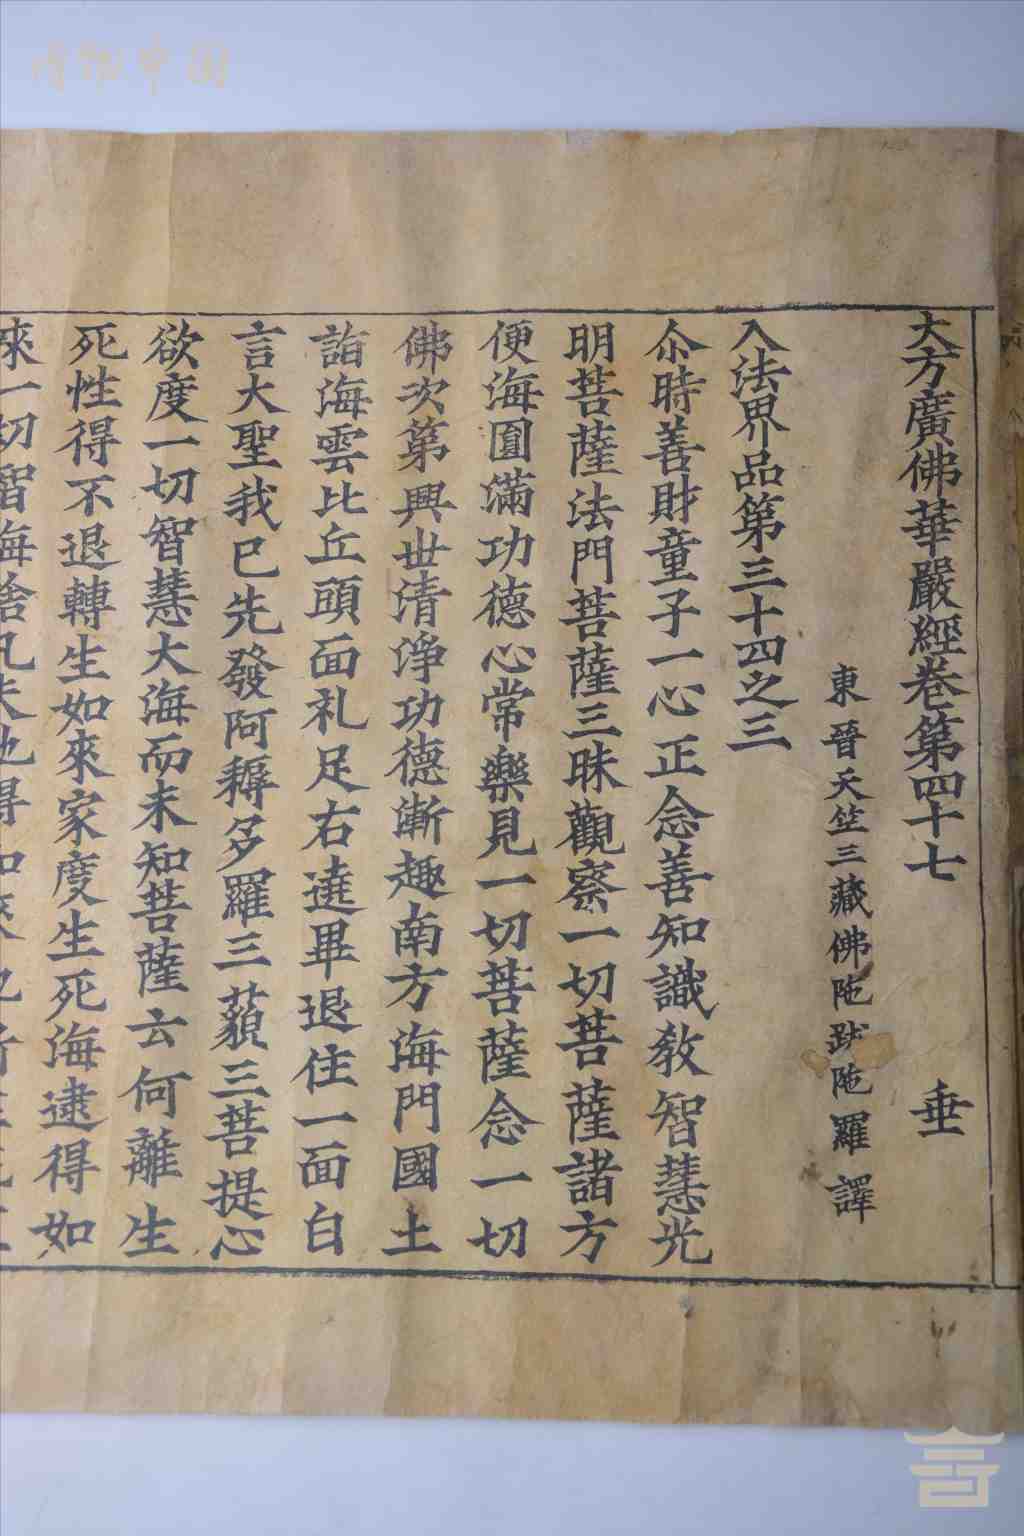 大方廣佛華嚴經卷第四十七 垂
東晉天竺三藏佛陁跋陁羅譯
入法界品第三十四之三
尒時善財童子一心正念善知識教智慧光
明菩薩法門菩薩三昧觀察一切菩薩諸方
便海圓滿功德心常樂見一切菩薩念一切
佛次第興世清淨功德漸趣南方海門國土
詣海雲比丘頭面礼足右遶畢退住一面白
言大聖我已先發阿耨多羅三藐三菩提心
欲度一切智慧大海而未知菩薩云何離生
死性得不退轉生如來家度生死海逮得如
來一切智海捨凡夫地得如來